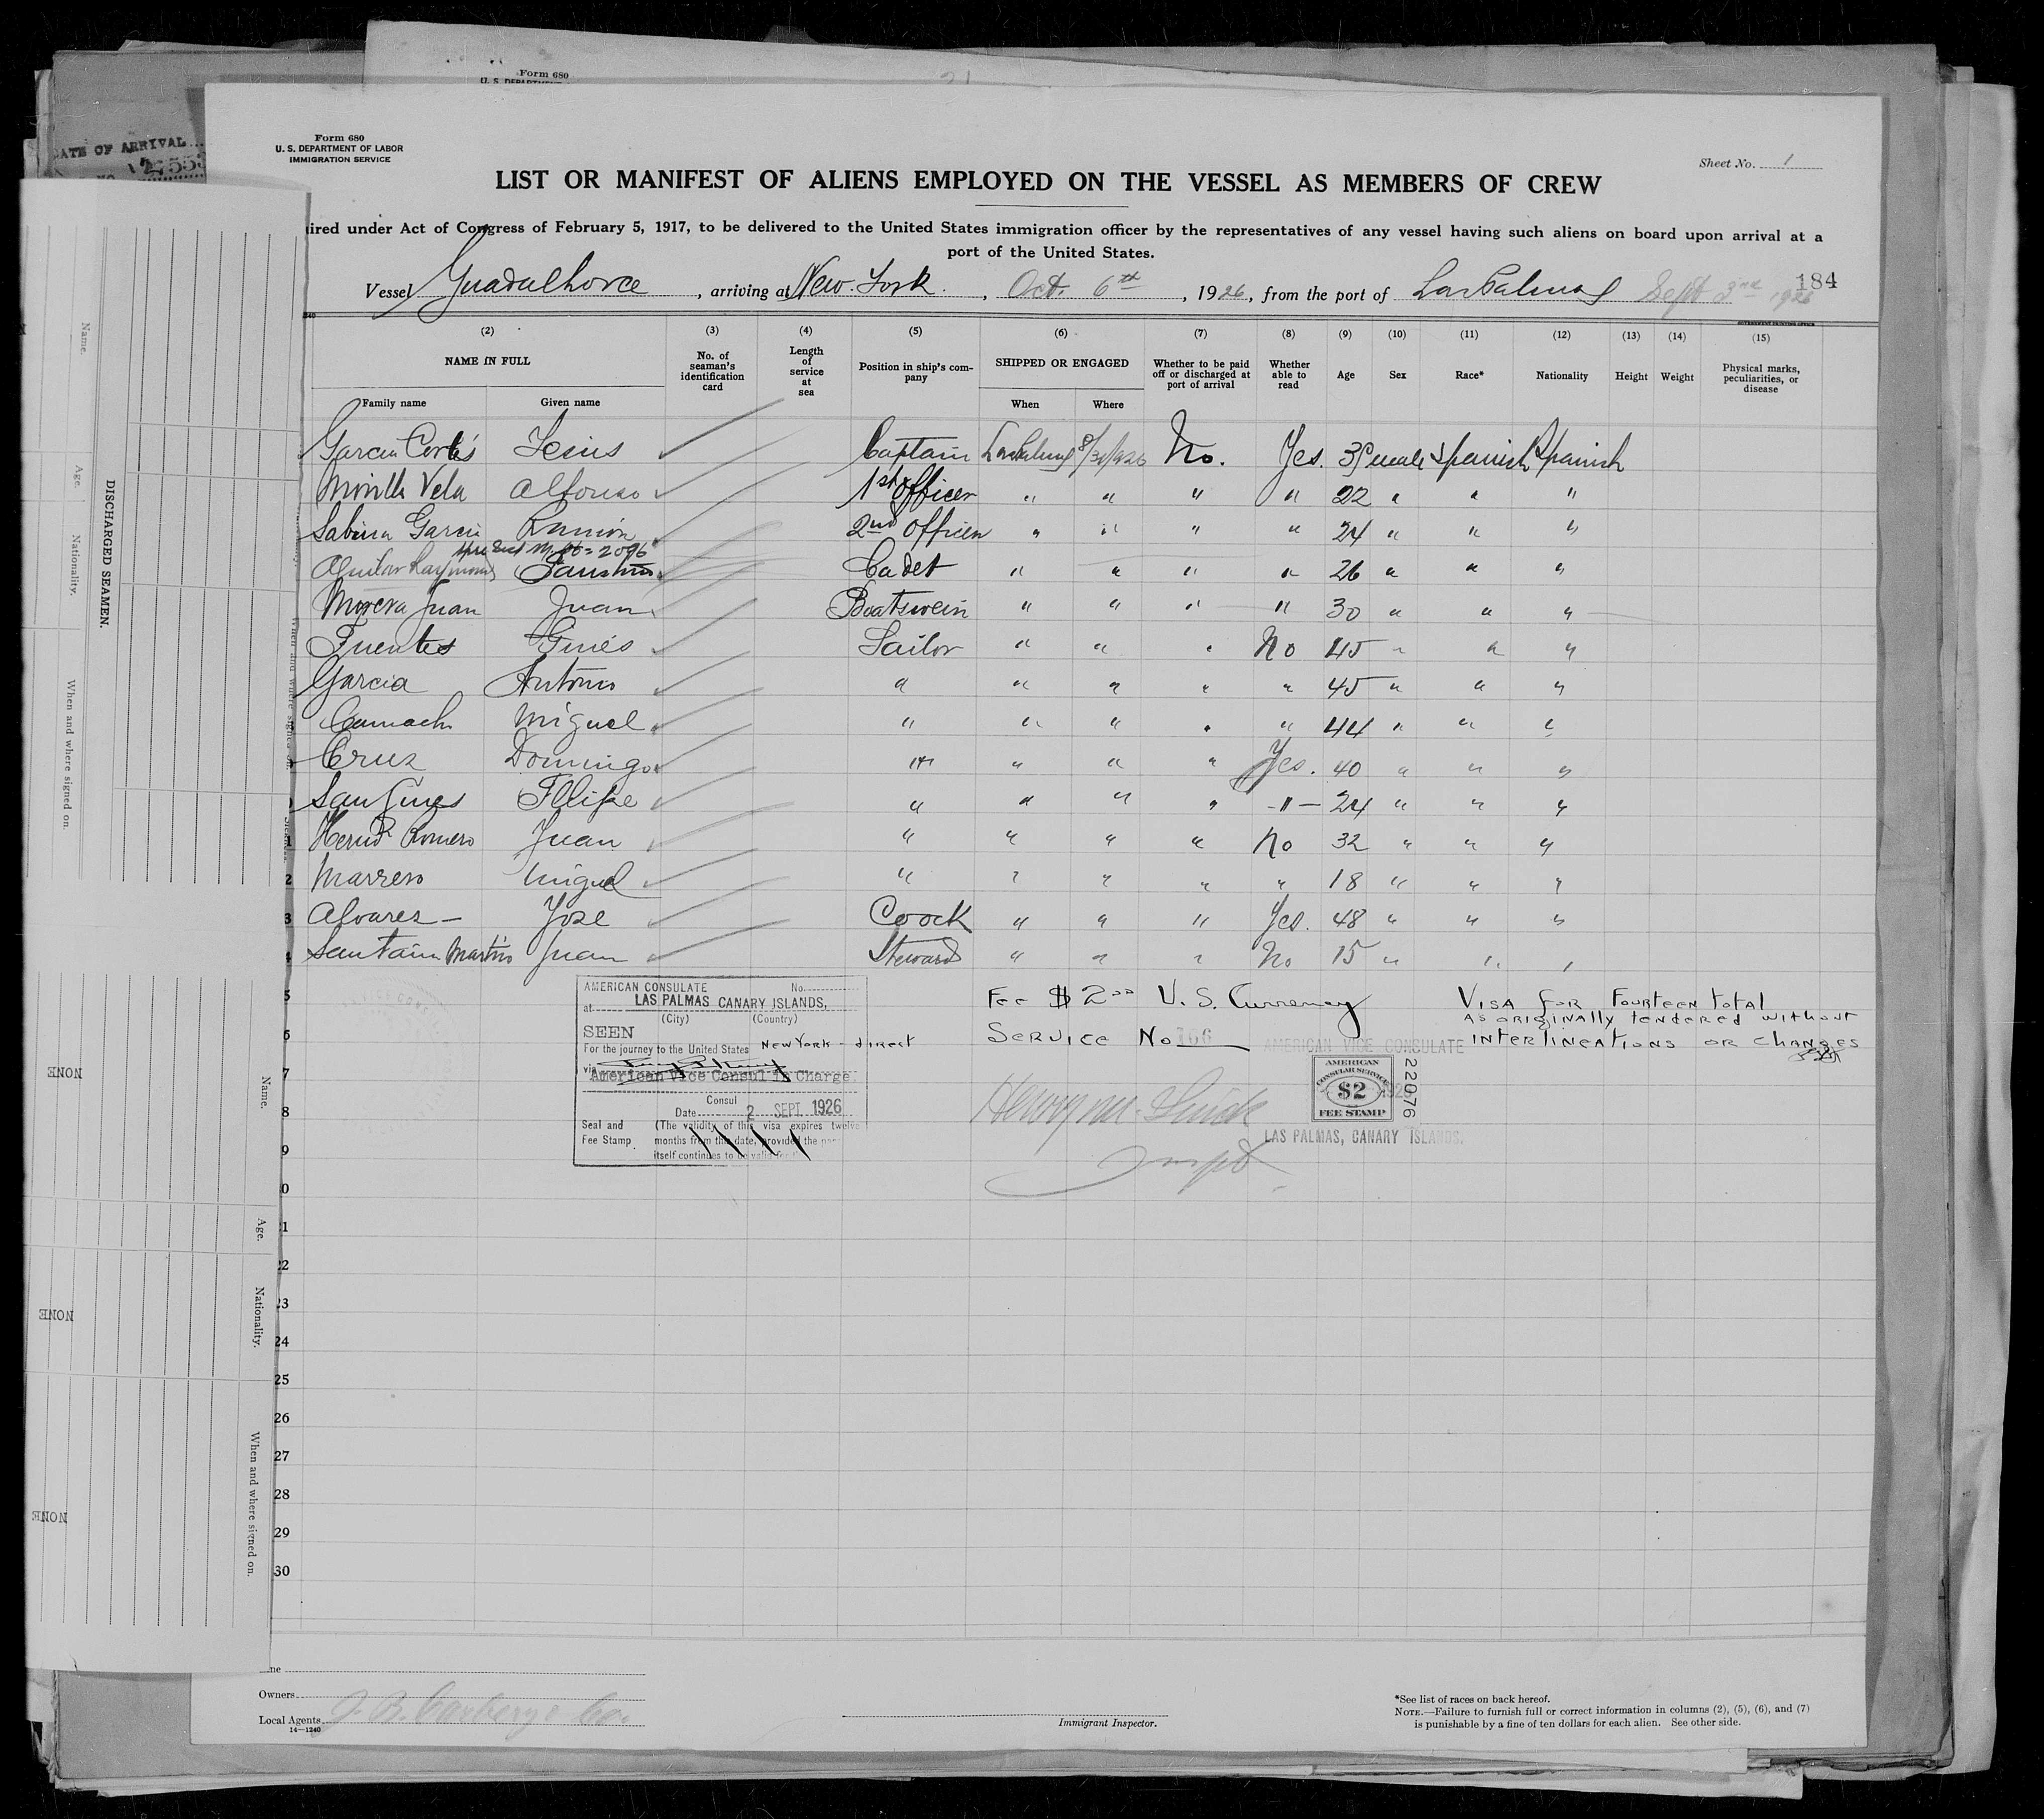 Form 680
U. S. DEPARTMENT
DATE OF ARRIVAL
Form 680
U. S. DEPARTMENT OF LABOR
IMMIGRATION SERVICE
Sheet No. 1
LIST OR MANIFEST OF ALIENS EMPLOYED ON THE VESSEL AS MEMBERS OF CREW
ired under Act of Congress of February 5, 1917, to be delivered to the United States immigration officer by the representatives of any vessel having such aliens on board upon arrival at a
port of the United States.
184
Vessel Guadalhorce, arriving at New York, Oct. 6th, 1926, from the port of Las Palmas Sept 3rd 1926
GOVERNMENT PRINTING OFFICE
(2) (3) (4) (5) (6) (7) (8) (9) (10) (11) (12) (13) (14) (15)
NAME IN FULL No. of seaman's identification card Length of service at sea Position in ship's company SHIPPED OR ENGAGED Whether to be paid off or discharged at port of arrival Whether able to read Age Sex Race* Nationality Height Weight Physical marks, peculiarities, or disease
Family name Given name When Where
Garcia Cortés Jesus Captain Las Palmas 8/30/1926 No. Yes. male Spanish Spanish
Vela Alfonso 1st officer " " " " 22 " " "
Sabina Garcia Ramón 2nd officer " " " " 24 " " "
Faustino Cadet " " " " 26 " " "
Juan Juan Boatswein " " " " 30 " " "
Fuentes Ginés Sailor " " " No 45 " " "
Garcia Antonio " " " " " 45 " " "
Camacho Miguel " " " " " 44 " " "
Cruz Domingo " " " " Yes. 40 " " "
San Gines Fllipe " " " " -"- 24 " " "
Hernd Romero Juan " " " " No 32 " " "
Marrero Miguel " " " " " 18 " " "
Alvarez - Jose Coock " " " Yes. 48 " " "
Santana Martin Juan Steward " " " No 15 " " "
AMERICAN CONSULATE No.
at LAS PALMAS CANARY ISLANDS,
(City) (Country)
SEEN
For the journey to the United States New York - direct
via
American Vice Consul in Charge.
Consul
Date 2 SEPT. 1926
Seal and Fee Stamp (The validity of this visa expires twelve
months from this date, provided the
itself continues to be valid for
Fee $2.00 U. S. Currency
Service No 166
Visa for fourteen total
as originally tendered without
interlineations or changes
AMERICAN VICE CONSULATE
AMERICAN
CONSULAR SERVICE
$2
FEE STAMP
22076
LAS PALMAS, CANARY ISLANDS.
5
6
7
8
9
0
21
22
23
24
25
26
27
28
29
30
DISCHARGED SEAMEN.
Name.
Age.
Nationality.
When and where signed on.
Name.
Age.
Nationality.
When and where signed on.
NONE
NONE
NONE
Owners
Local Agents
14—1240
Immigrant Inspector.
*See list of races on back hereof.
NOTE.—Failure to furnish full or correct information in columns (2), (5), (6), and (7)
is punishable by a fine of ten dollars for each alien. See other side.